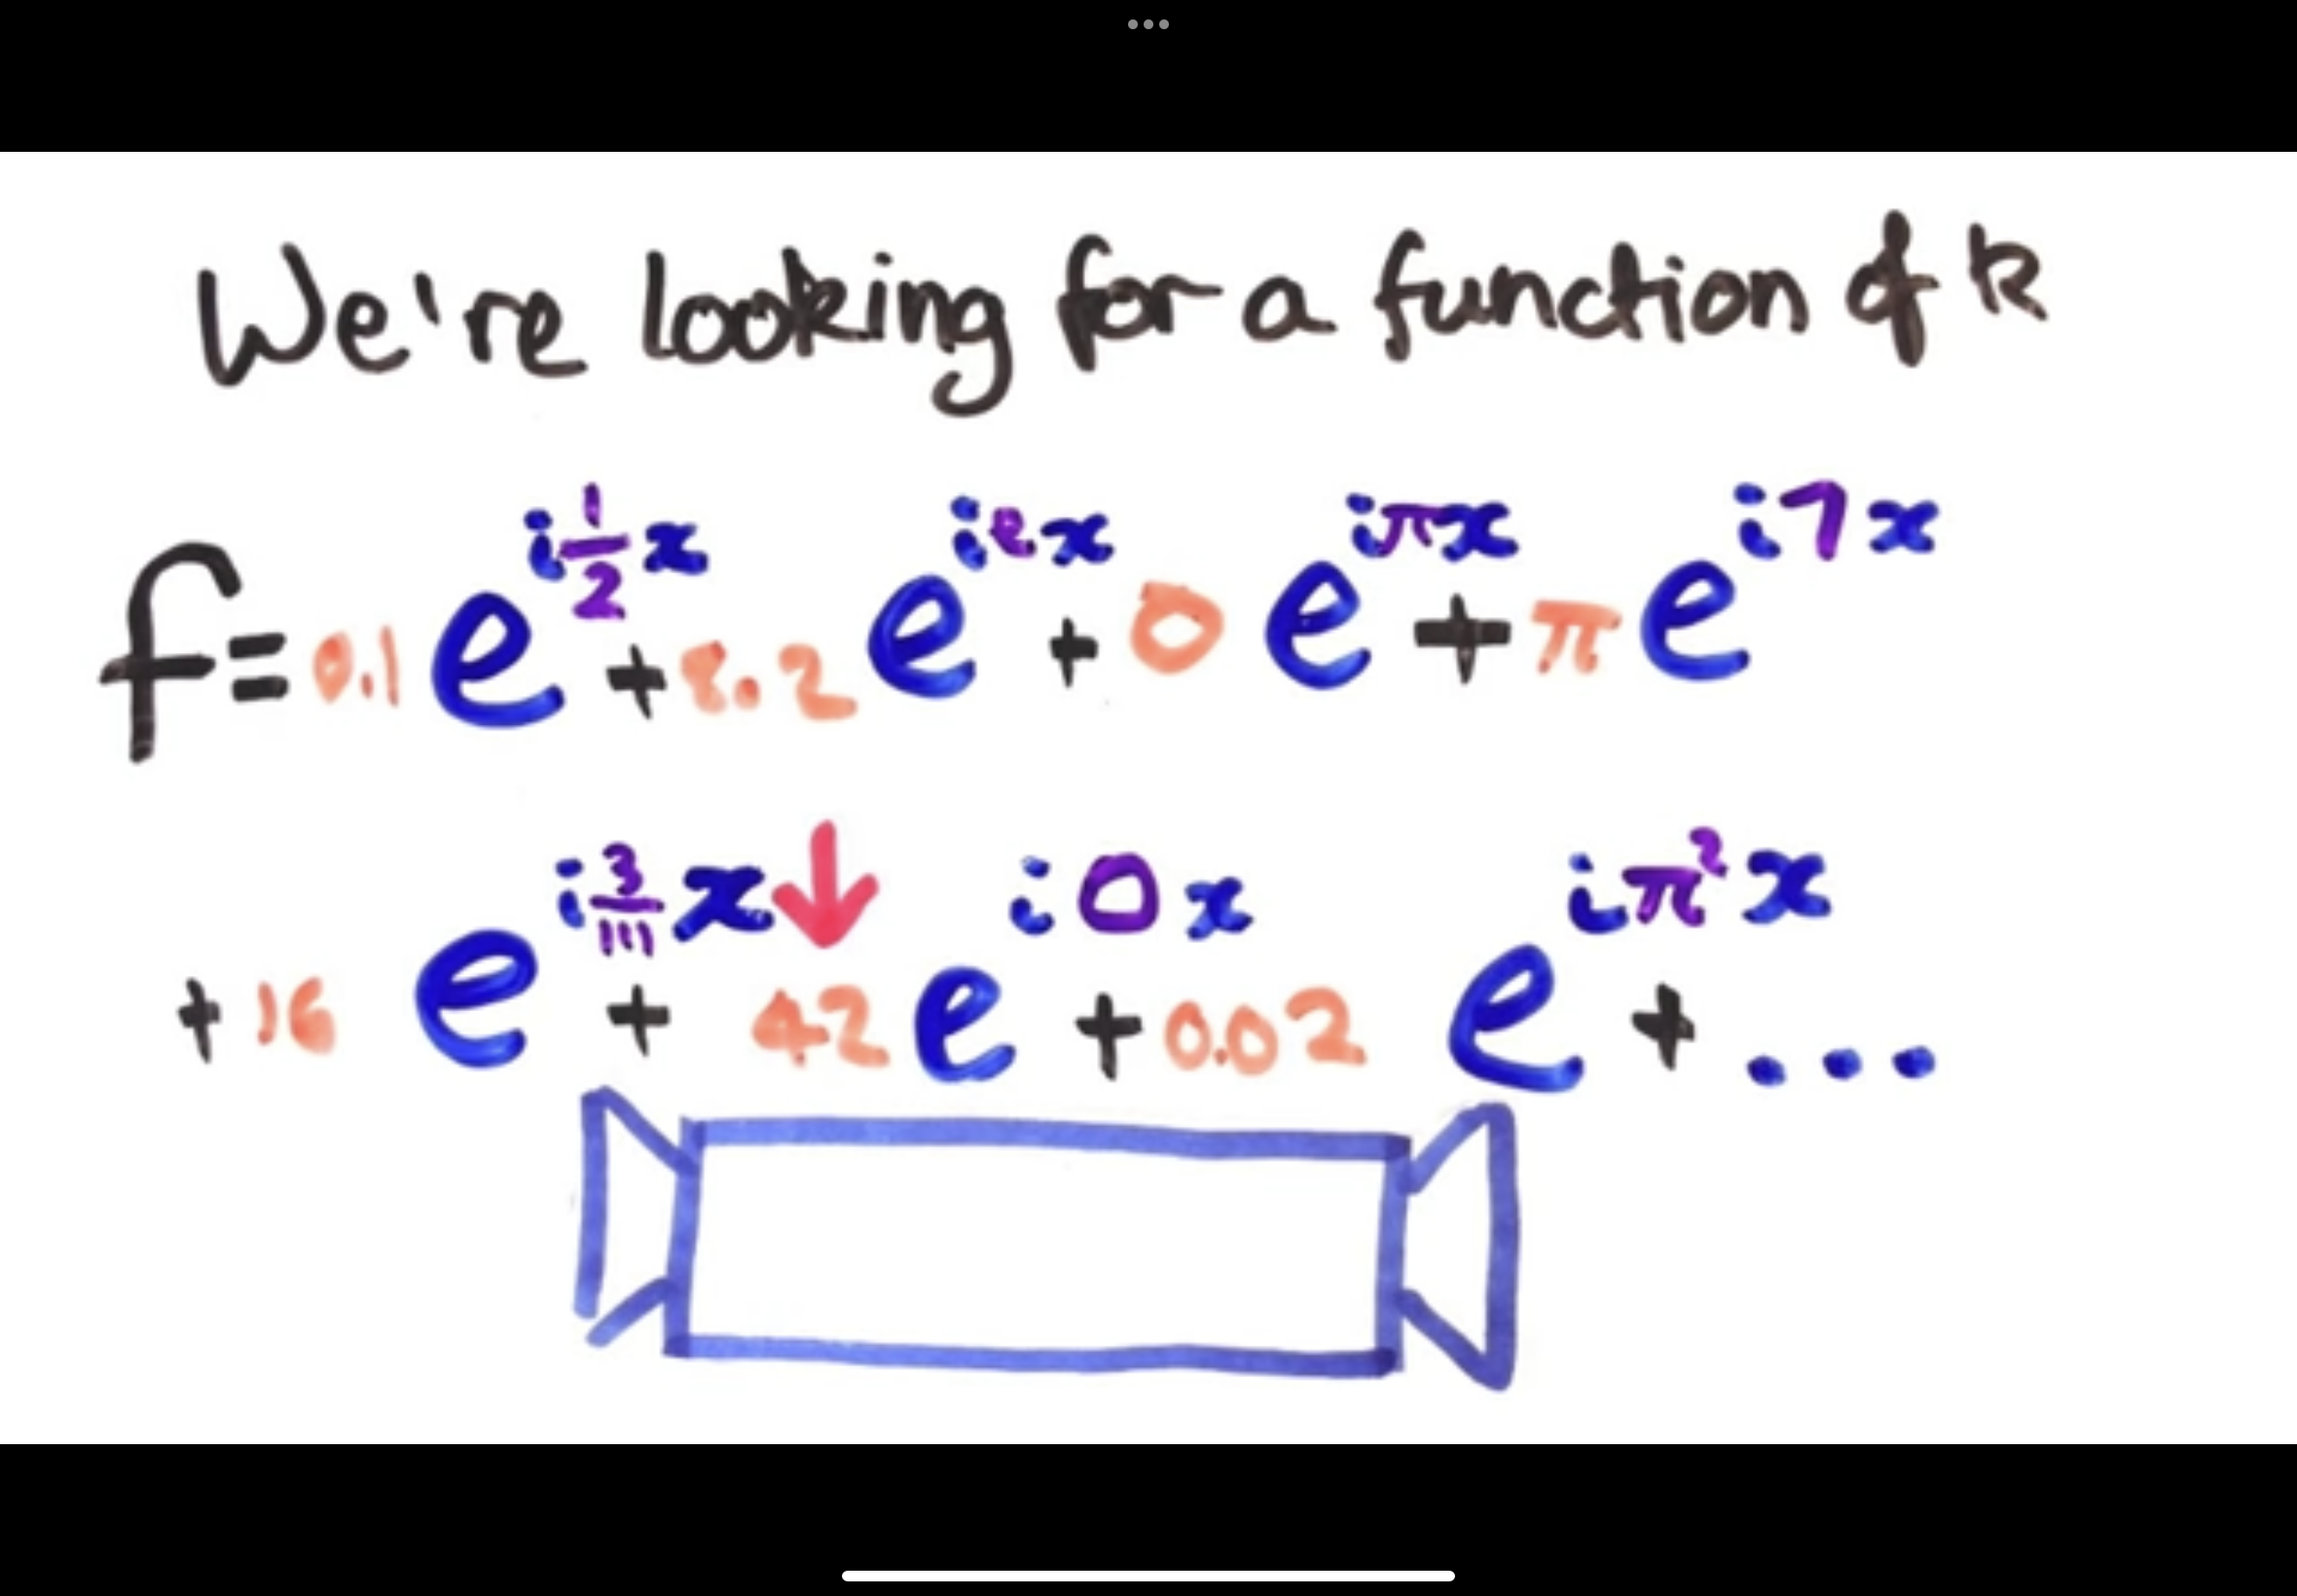 We're looking for a function of k
f = 0.1 e^{i\frac{1}{2}x} + 8.2 e^{iex} + 0 e^{iπx} + π e^{i7x}
+ 16 e^{i\frac{3}{111}x} + 42 e^{i0x} + 0.02 e^{iπ²x} + ...